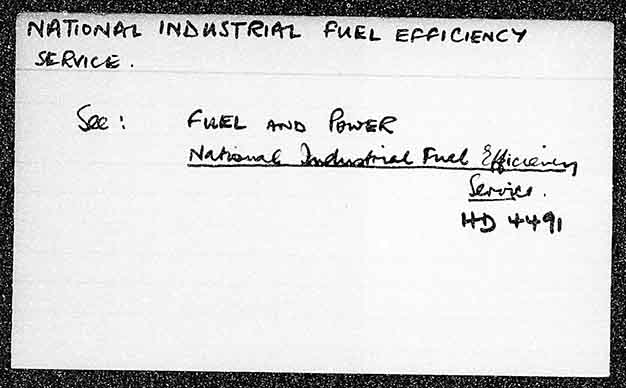 NATIONAL INDUSTRIAL FUEL EFFICIENCY
SERVICE.
See: FUEL AND POWER
National Industrial Fuel Efficiency
Service.
HD 4491